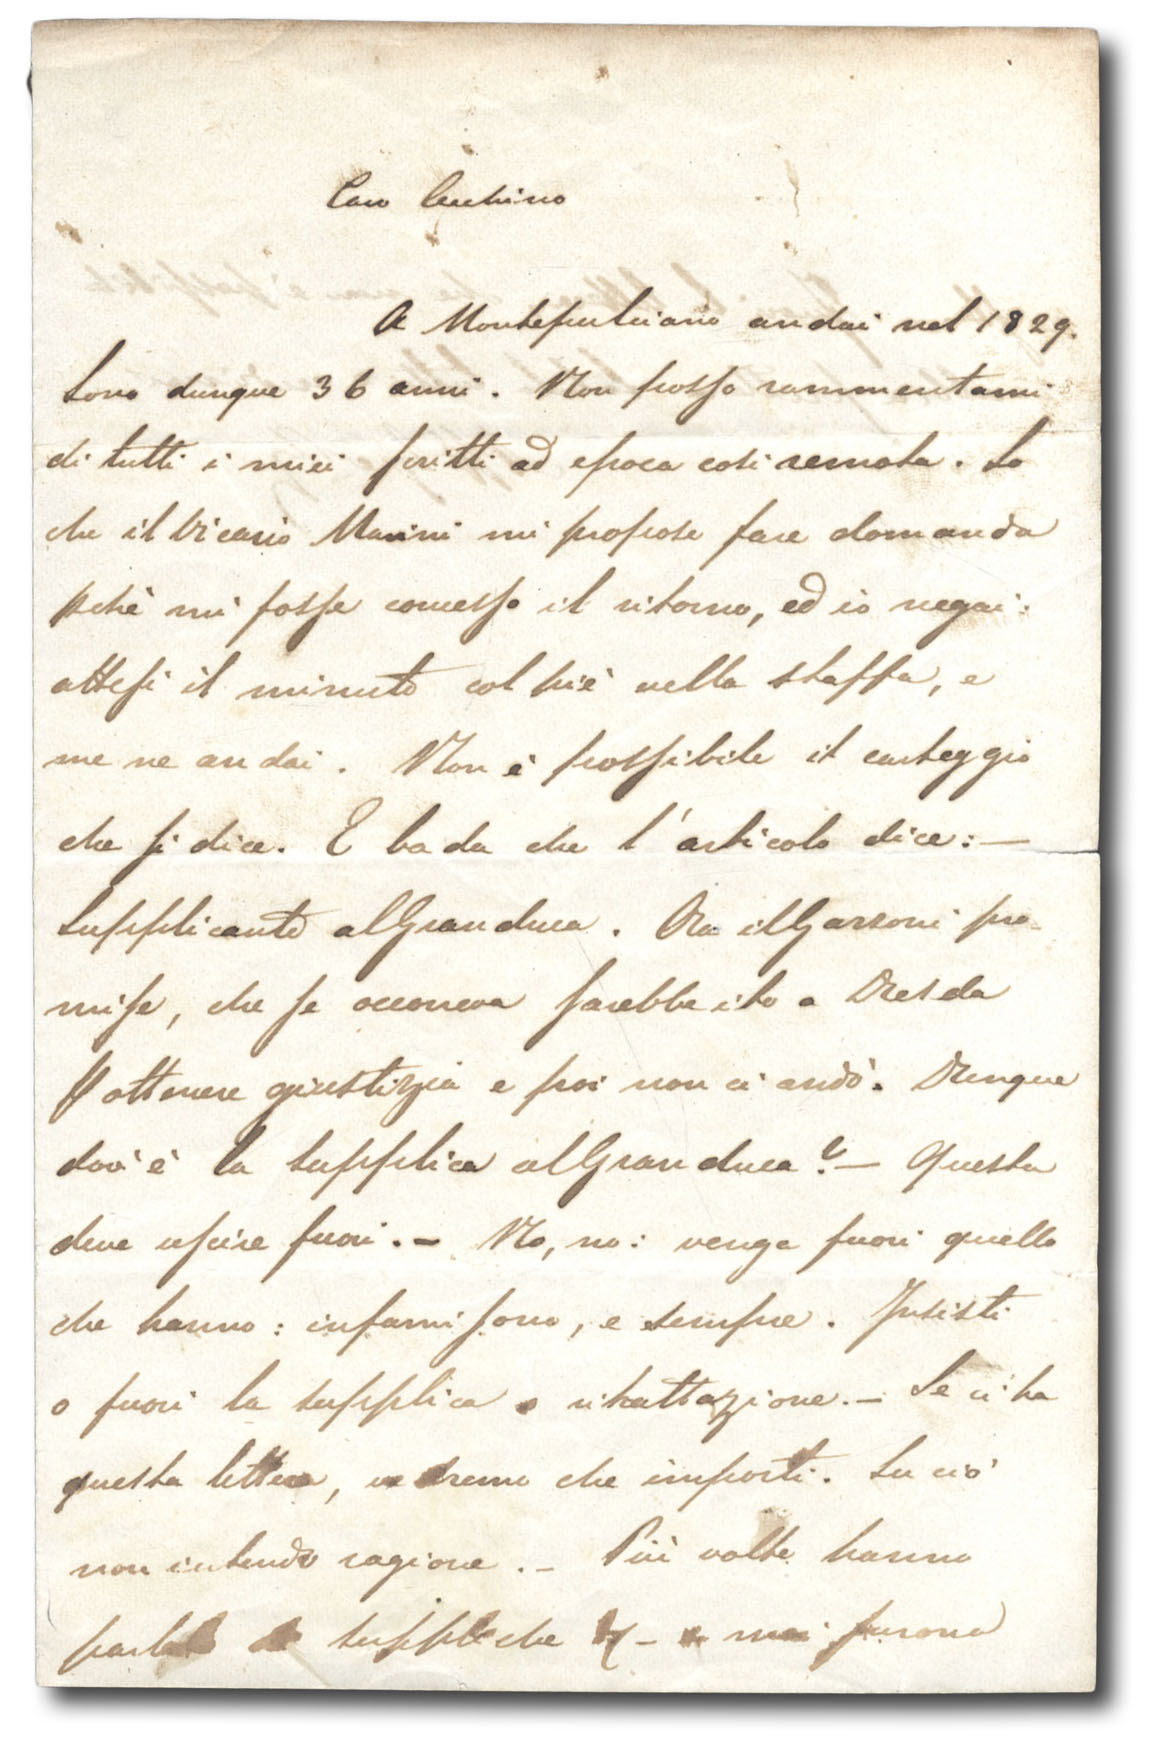 Caro Cecchino
A Montepulciano andai nel 1829.
Sono dunque 36 anni. Non posso rammentarmi
di tutti i miei scritti ad epoca così remota. So
che il Vicario Marini mi propose fare domanda
pchè mi fosse concesso il ritorno, ed io negai:
attesi il minuto col piè nella staffa, e
me ne andai. Non è possibile il carteggio
che si dice. E bada che l'articolo dice: —
supplicante al Granduca. Ora il Garzoni pro
mise, che se occorreva sarebbe ito a Dresda
p ottenere giustizia e poi non ci andò. Dunque
dov'è la supplica al Granduca? — Questa
deve uscire fuori. — No, no: venga fuori quello
che hanno: infami sono, e sempre. Insisti
o fuori la supplica o ritrattazione. — Se ci ha
questa lettera, vedremo che importi. Su ciò
non intendo ragione. — Più volte hanno
suppliche — mai furono